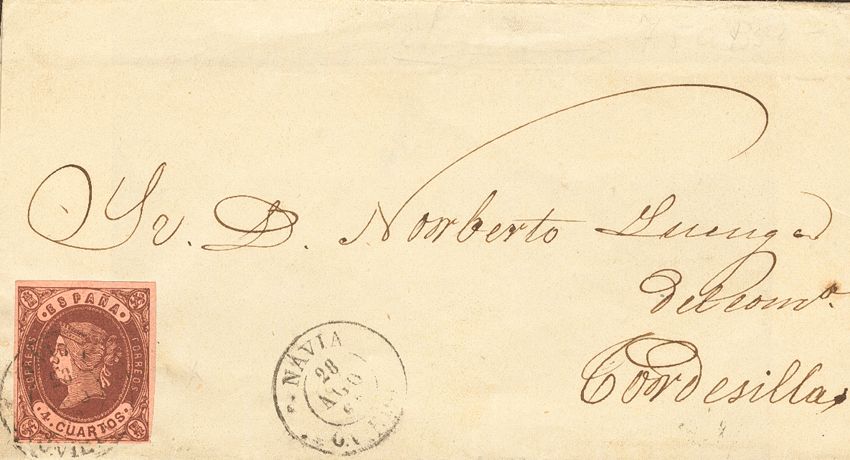 Sr. D. Norberto Luengo
del comº.
Tordesillas
ESPAÑA
CORREOS
CORREOS
4 CUARTOS
NAVIA
28
AGO